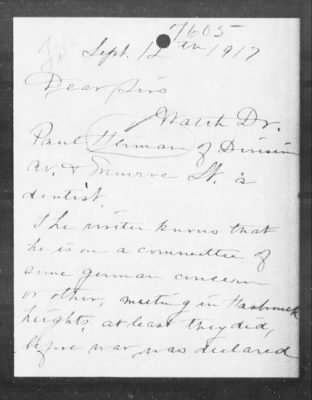 7605
Sept. 12th 1917
Dear Sirs
Watch Dr.
Paul Herman of Division
Av. & Munroe St. a
dentist.
The writer knows that
he is on a committee of
some german concern
or other, meeting in Hasbrouck
heights, at least they did,
before war was declared